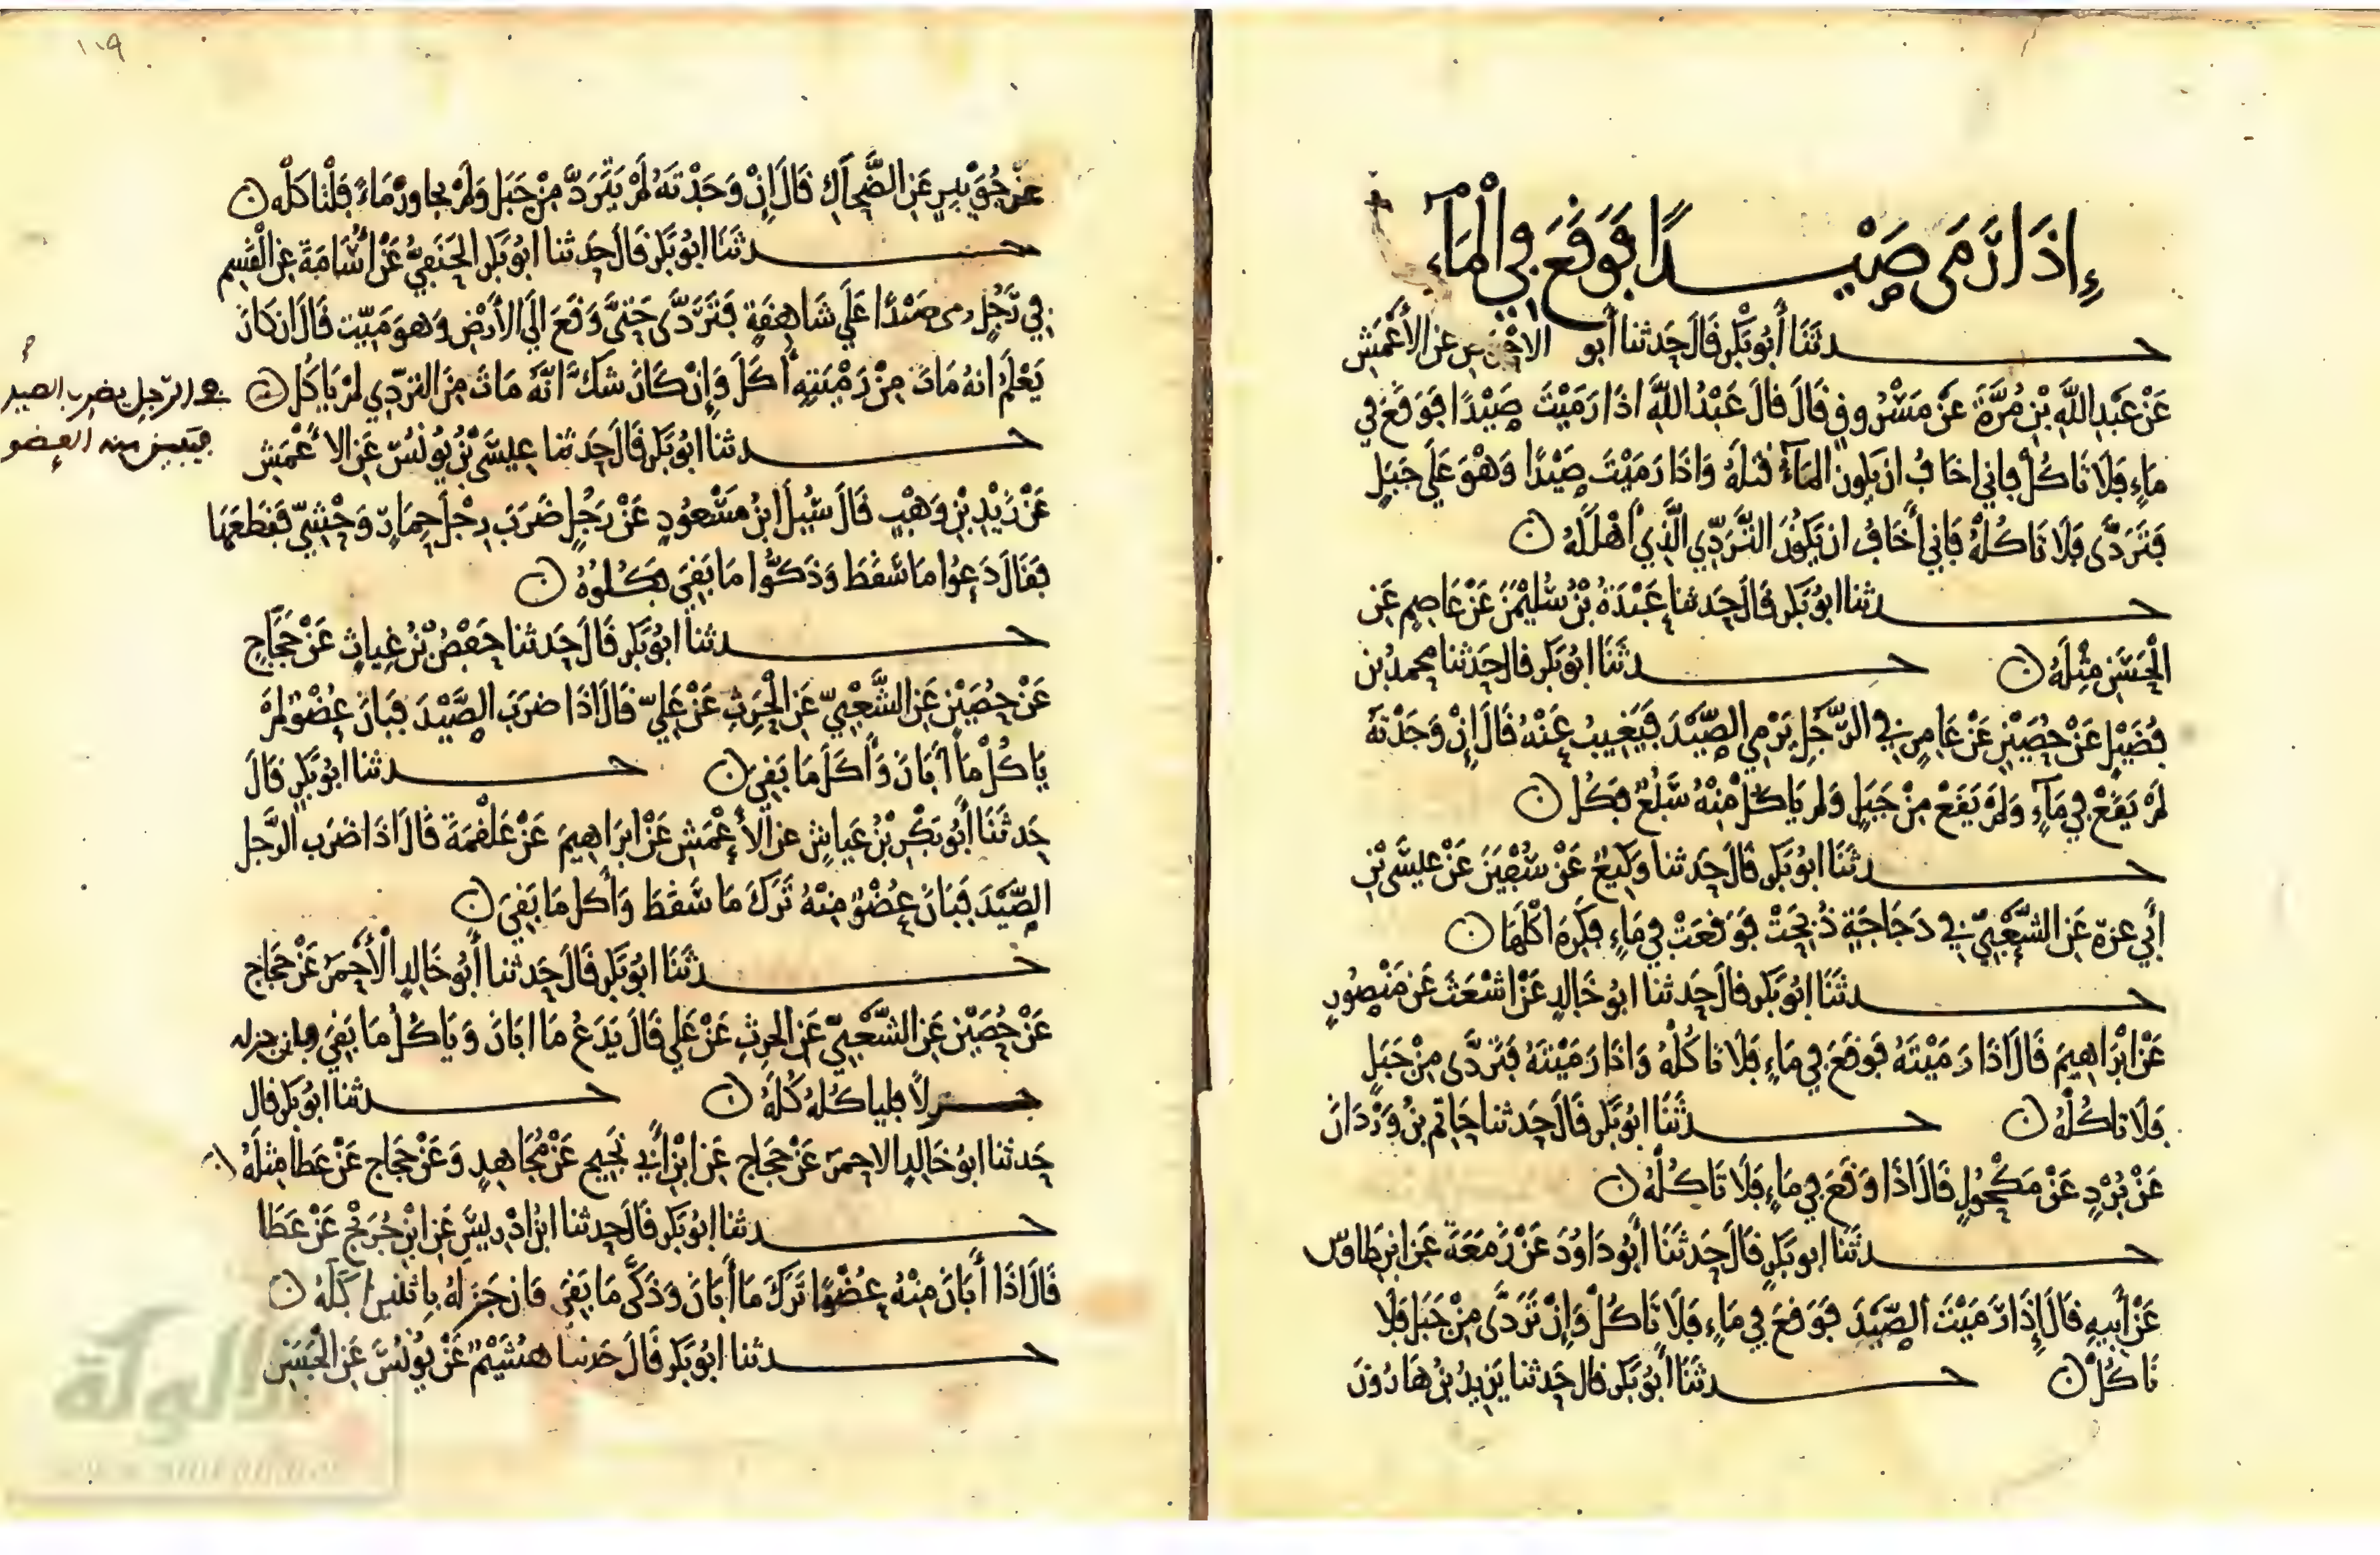 إِذَا رَمَى صَيْدًا فَوَقَعَ فِي الْمَاءِ
حدثَنَا أَبُو بَكْر قَالَ حَدثنا أبو الاحْوص عن الأَعْمَش
عَنْ عَبْدِ اللَّهِ بْنِ مُرَّةَ عَنْ مَسْرُوقٍ قَالَ قالَ عَبْدُ اللَّه اذَا رَمَيْتَ صَيْدًا فَوَقَعَ فِي
مَاءٍ فَلَا تَاكُلْ فاني اخَافُ ان يكون المَآءُ قتلهُ وَاذَا رَمَيْتَ صَيْدًا وَهْوَ عَلَى جَبَلٍ
فَتَرَدَّى فَلَا تَاكُلْهُ فَإني أَخَافُ ان يَكُونَ التَّرَدِّي الَّذِي أَهْلَكَهُ
حدثنا ابُو بَكر قَالَ حَدثنا عَبْدَةُ بْنُ سُلَيْمٰنَ عَنْ عَاصِمٍ عَنِ
الْحَسَنِ مِثْلَهُ حدثَنَا ابُو بَكر قال حَدثنا محمد بن
فُضَيْلٍ عَنْ حُصَيْنٍ عَنْ عَامِرٍ فِي الرَّجُلِ يَرْمِي الصَّيْدَ فَيَغِيبُ عَنْهُ قَالَ إِنْ وَجَدْتَهُ
لَمْ يَقَعْ فِي مَآءٍ وَلَمْ يَقَعْ مِنْ جَبَلٍ وَلم يَاكُلْ مِنْهُ سَبُعٌ فَكُل
حدثَنَا ابُو بَكر قَالَ حَدثنا وَكِيعٌ عَنْ سُفْيَنَ عَنْ عِيسَى بْنِ
أَبِي عزة عَنِ الشَّعْبِيِّ فِي دَجَاجَةٍ ذُبِحَتْ فَوَقَعَتْ فِي مَاءٍ فكَرِهَ اكْلَهَا
حدثَنَا ابُو بَكر قالَ حَدثنا ابُو خَالِدٍ عَنْ اشْعَثَ عَنْ مَنْصُورٍ
عَنْ ابْرَاهِيمَ قَالَ اذَا رَمَيْتَهُ فَوَقَعَ فِي مَاءٍ فَلَا تَاكُلْهُ وَاذَا رَمَيْتَهُ فَتَرَدَّى مِنْ جَبَلٍ
فَلَا تاكُلْهُ حدثَنَا ابُو بَكر قَالَ حَدثنا حَاتِم بنُ وَرْدَانَ
عَنْ بُرْدٍ عَنْ مَكْحُولٍ قَالَ اذَا وَقَعَ فِي مَاءٍ فَلَا تَاكُلْهُ
حدثَنَا ابو بَكر قَالَ حَدثَنَا أَبُو دَاوُدَ عَنْ زَمعَةَ عَنِ ابْنِ طاوس
عَنْ أَبِيهِ قَالَ إِذَا رَمَيْتَ الصَّيْدَ فَوَقَعَ فِي مَاءٍ فَلَا تَاكُلْ وَإِنْ تَرَدَّى مِنْ جَبَل فَلَا
تَاكُلْ حدثَنَا أَبُو بَكر قال حَدثنا يَزِيدُ بْنُ هَارُونَ
١١٩
عَنْ جُوَيْبِرٍ عَنِ الضَّحاك قَالَ إِنْ وَجَدْتَهُ لَمْ يَتَرَدَّ مِنْ جَبَل وَلَمْ يجاور مَاءً فَلْتاكله
حدثَنَا ابُو بَكر قَالَ حَدثنا ابُو بَكر الحَنَفِيُّ عَنْ اسَامَةَ عن الْقَسِم
فِي رَجُل رمى صَيْدًا عَلَى شَاهِقَةٍ فَتَرَدَّى حَتَّى وَقَعَ الَى الأَرْضِ وَهوَ مَيّت قَالَ ان كَانَ
يَعْلَمُ انهُ مَاتَ مِنْ رَمْيَتِهِ أَكَلَ وَإِنْ كَانَ شَكَّ انَّهُ مَاتَ مِنَ التردِّي لَمْ يَاكَل
في الرجل يضرب الصيد
فيبين منه العضو
حدثنا ابُو بَكر قَالَ حَدثنا عِيسَى بْنُ يُونُسَ عَنِ الاعْمَشِ
عَنْ زَيْدِ بْنِ وَهْبٍ قَالَ سُيلَ ابنُ مَسْعُودٍ عَنْ رَجُلٍ ضَرَبَ رِجْلَ حِمَارٍ وَحْشِيٍّ فَقَطَعَهَا
فَقَالَ دَعُوا مَا سَقَطَ وَذَكُّوا مَا بَقِيَ فَكُلُوهُ
حدثنا ابُو بَكر قَالَ حَدثنا حَفْصُ بْنُ غِيَاثٍ عَنْ حَجَّاجٍ
عَنْ حُصَيْنٍ عَنِ الشَّعْبِيِّ عَنِ الْحَرِثِ عَنْ عَلِيّ قَالَ اذَا ضَرَبَ الصَّيْدَ فَبَانَ عُضْوٌ لَمْ
يَاكُلْ مَا أَبَانَ وَأَكَلَ مَا بَقِيَ حدثنا ابُو بَكر قَالَ
حَدثَنَا أَبُو بَكْرِ بْنُ عَياش عن الأَعْمَشِ عَنْ ابرَاهِيمَ عَنْ عَلْقَمَةَ قَالَ اذَا ضَرَب الرَّجل
الصَّيْدَ فَبَانَ عُضْوٌ مِنْهُ تَرَكَ مَا سَقَطَ وَأَكل مَا بَقِيَ
حدثَنَا ابُو بَكر قَالَ حَدثنا أَبُو خَالِدٍ الْأَحْمَرُ عَنْ حَجَاج
عَنْ حُصَيْنٍ عَنِ الشَّعْبِيِّ عَنِ الحرثِ عَنْ عَلي قَالَ يَدَعُ مَا ابَانَ وَيَاكُلُ مَا بَقِيَ فان جزله
جزلًا فلياكله كُلَهُ حدثنا ابُو بَكر قال
حَدثنا ابُو خَالِد الاحمرُ عَنْ حَجاج عَنِ ابْنِ أَبِي نَجِيح عَنْ مُجَاهِدٍ وَعَنْ حَجاج عَنْ عَطَا مِثْلَهُ
حدثنا ابُو بَكر قَالَ حدثنا ابْنُ ادْرِيسَ عَنِ ابْنِ جُرَيْجٍ عَنْ عَطَا
قَالَ اذَا أَبَانَ مِنْهُ عُضْوًا تَرَكَ مَا أَبَانَ وَذَكَّى مَا بَقِيَ فَان جَزَلهُ بِاثنين اكَلَهُ
حدثنا ابُو بَكر قَالَ حَدثنا هُشَيْمٌ عَنْ يُونُسَ عَنِ الْحَسَنِ
الألوكة